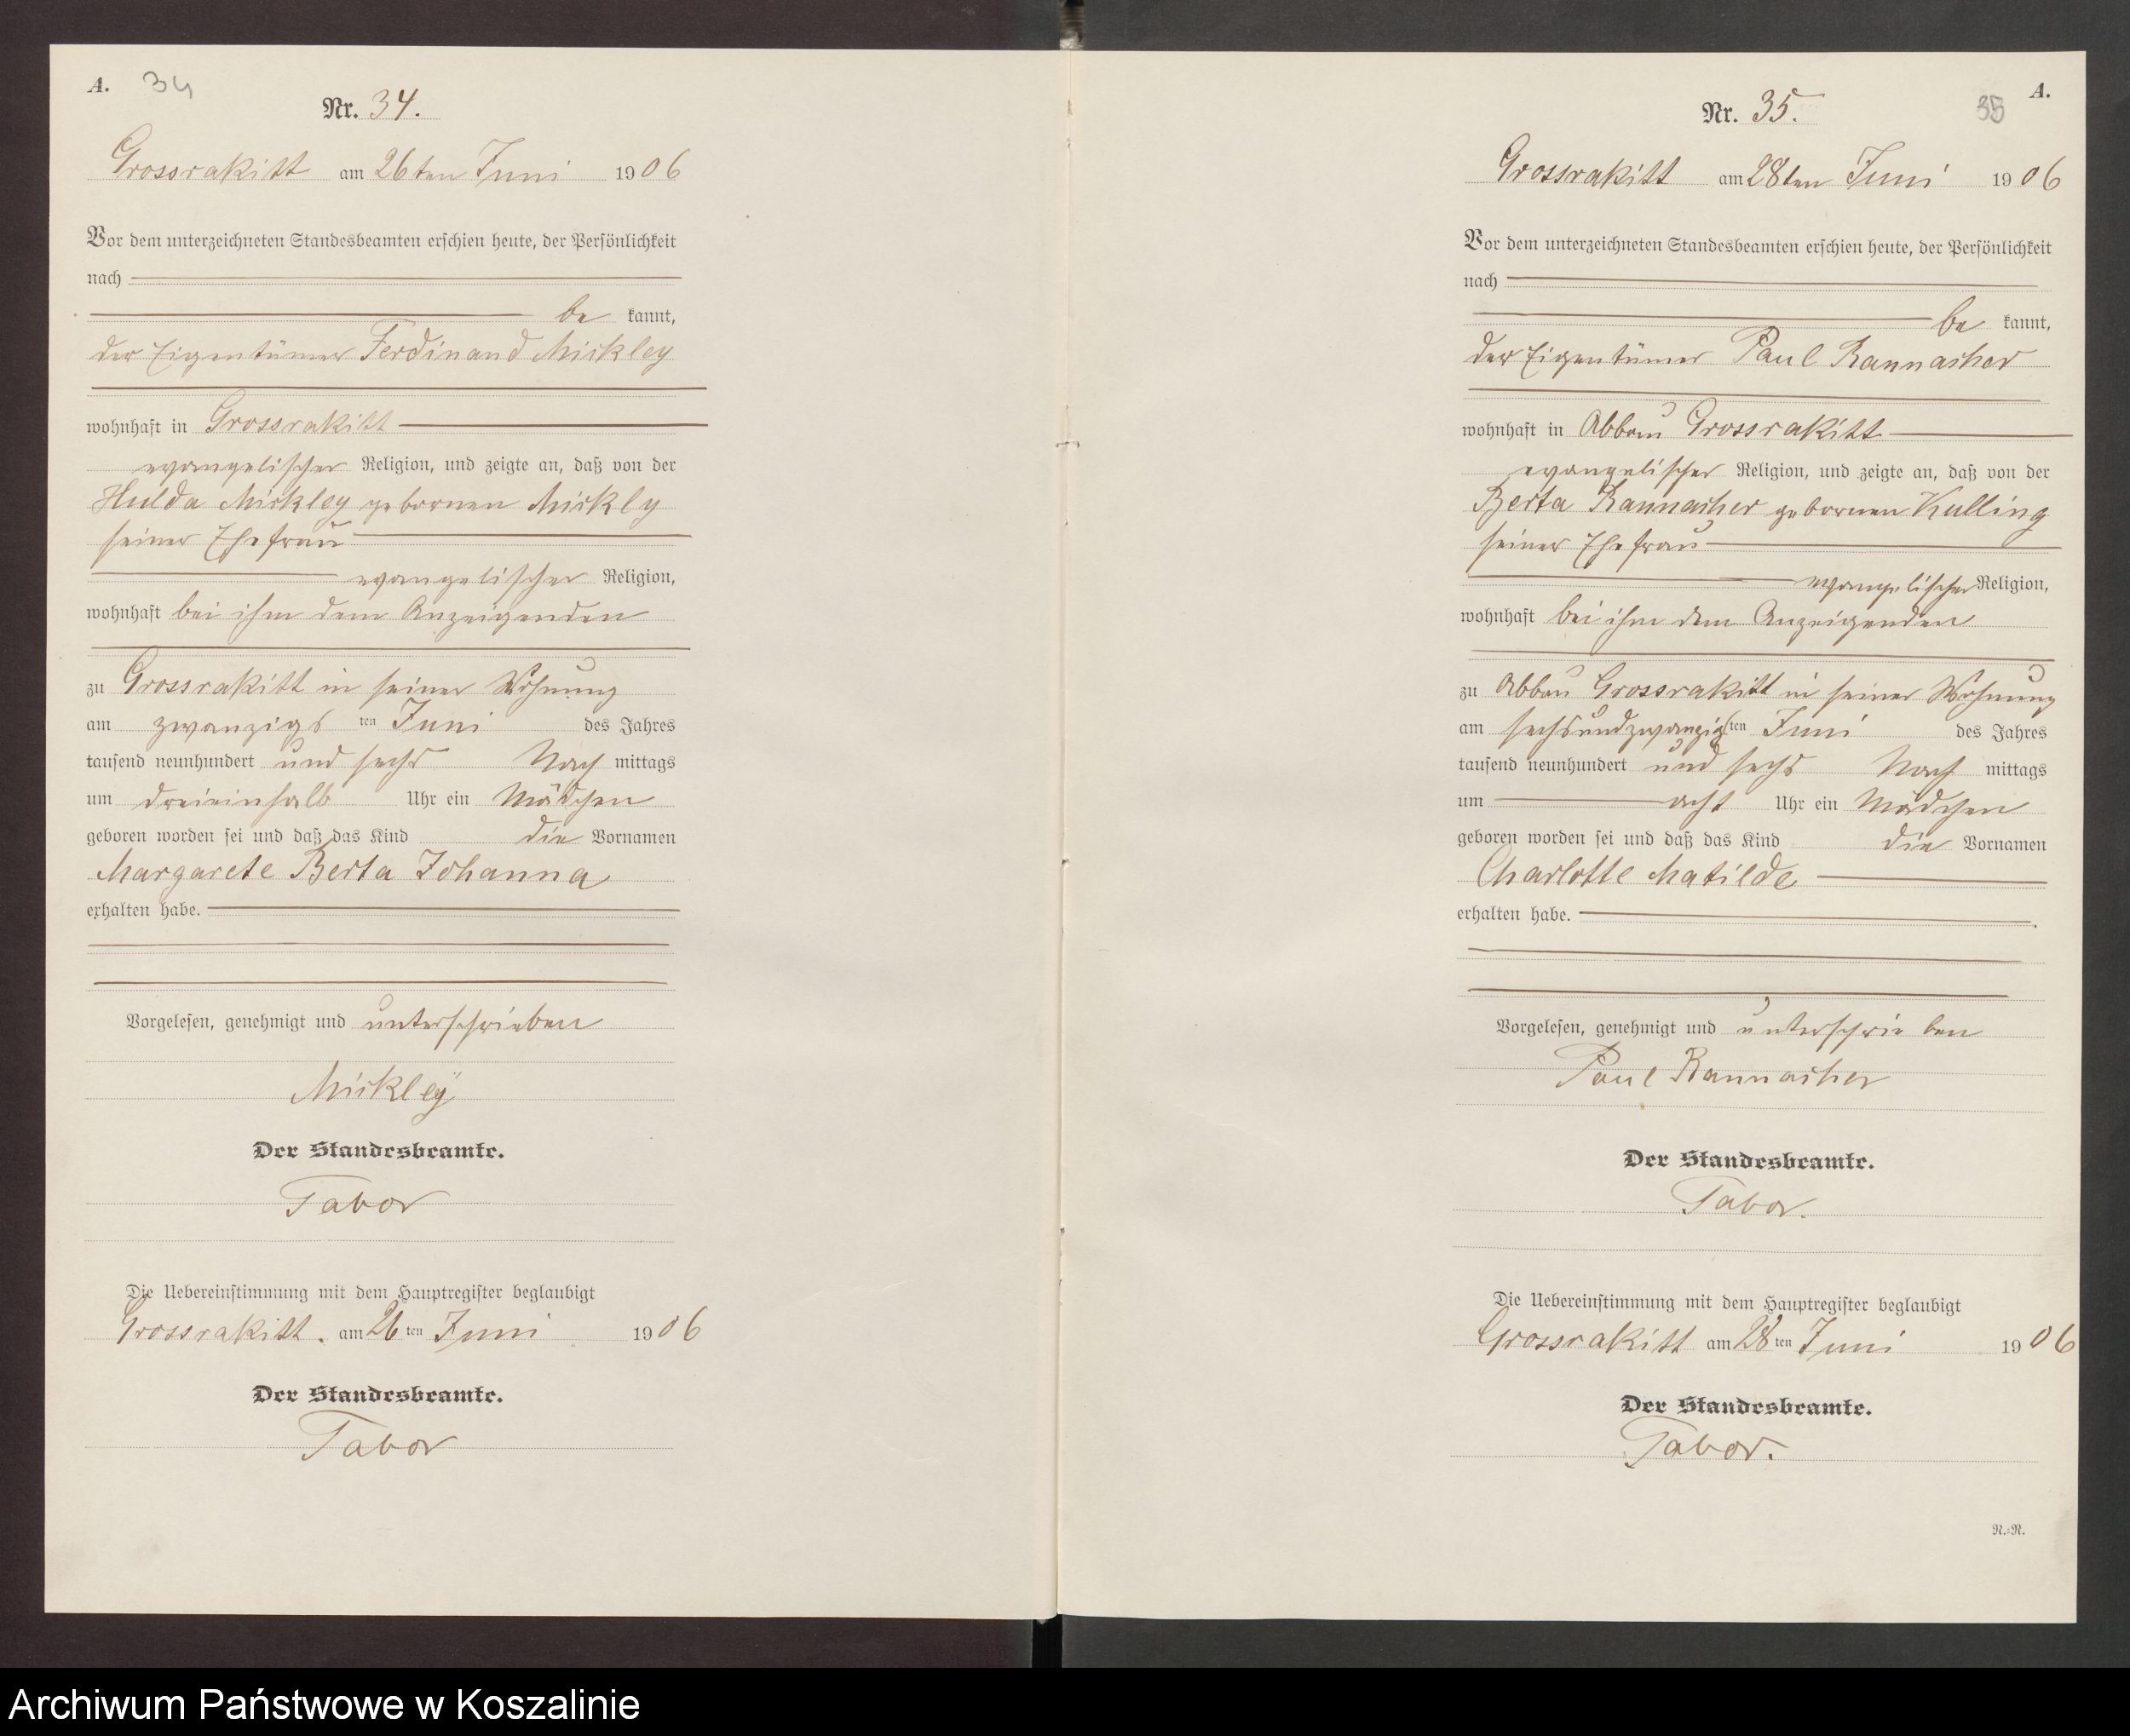 A. 34
Nr. 34.
Grossrakitt am 26ten Juni 1906
Vor dem unterzeichneten Standesbeamten erschien heute, der Persönlichkeit
nach
be kannt,
der Eigentümer Ferdinand Mickley
wohnhaft in Grossrakitt
evangelischer Religion, und zeigte an, daß von der
Hulda Mickley gebornen Mickly
seiner Ehefrau
evangelischer Religion,
wohnhaft bei ihm dem Anzeigenden
zu Grossrakitt in seiner Wohnung
am zwanzigs ten Juni des Jahres
tausend neunhundert und sechs Nach mittags
um dreieinhalb Uhr ein Mädchen
geboren worden sei und daß das Kind die Vornamen
Margarete Berta Johanna
erhalten habe.
Vorgelesen, genehmigt und unterschrieben
Mickley
Der Standesbeamte.
Tabor
Die Uebereinstimmung mit dem Hauptregister beglaubigt
Grossrakitt. am 26 ten Juni 1906
Der Standesbeamte.
Tabor
A.
35
Nr. 35.
Grossrakitt am 28ten Juni 1906
Vor dem unterzeichneten Standesbeamten erschien heute, der Persönlichkeit
nach
be kannt,
der Eigentümer Paul Rannacher
wohnhaft in Abbau Grossrakitt
evangelischer Religion, und zeigte an, daß von der
Berta Rannacher gebornen Kulling
seiner Ehefrau
evangelischer Religion,
wohnhaft bei ihm dem Anzeigenden
zu Abbau Grossrakitt in seiner Wohnung
am sechsundzwanzigs ten Juni des Jahres
tausend neunhundert und sechs Nach mittags
um acht Uhr ein Mädchen
geboren worden sei und daß das Kind die Vornamen
Charlotte Matilde
erhalten habe.
Vorgelesen, genehmigt und unterschrieben
Paul Rannacher
Der Standesbeamte.
Tabor.
Die Uebereinstimmung mit dem Hauptregister beglaubigt
Grossrakitt am 28 ten Juni 1906
Der Standesbeamte.
Tabor.
R.-R.
Archiwum Państwowe w Koszalinie